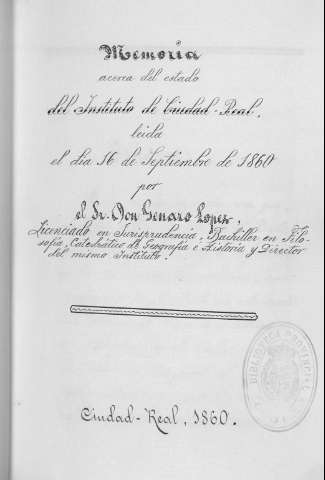 Memoria
acerca del estado
del Instituto de Ciudad-Real,
leida
el dia 16 de Septiembre de 1860
por
el Sr. Don Genaro Lopez,
Licenciado en Jurisprudencia, Bachiller en Filo-
sofía, Catedrático de Geografía e Historia y Director
del mismo Instituto.
Ciudad-Real, 1860.
BIBLIOTECA PROVINCIAL